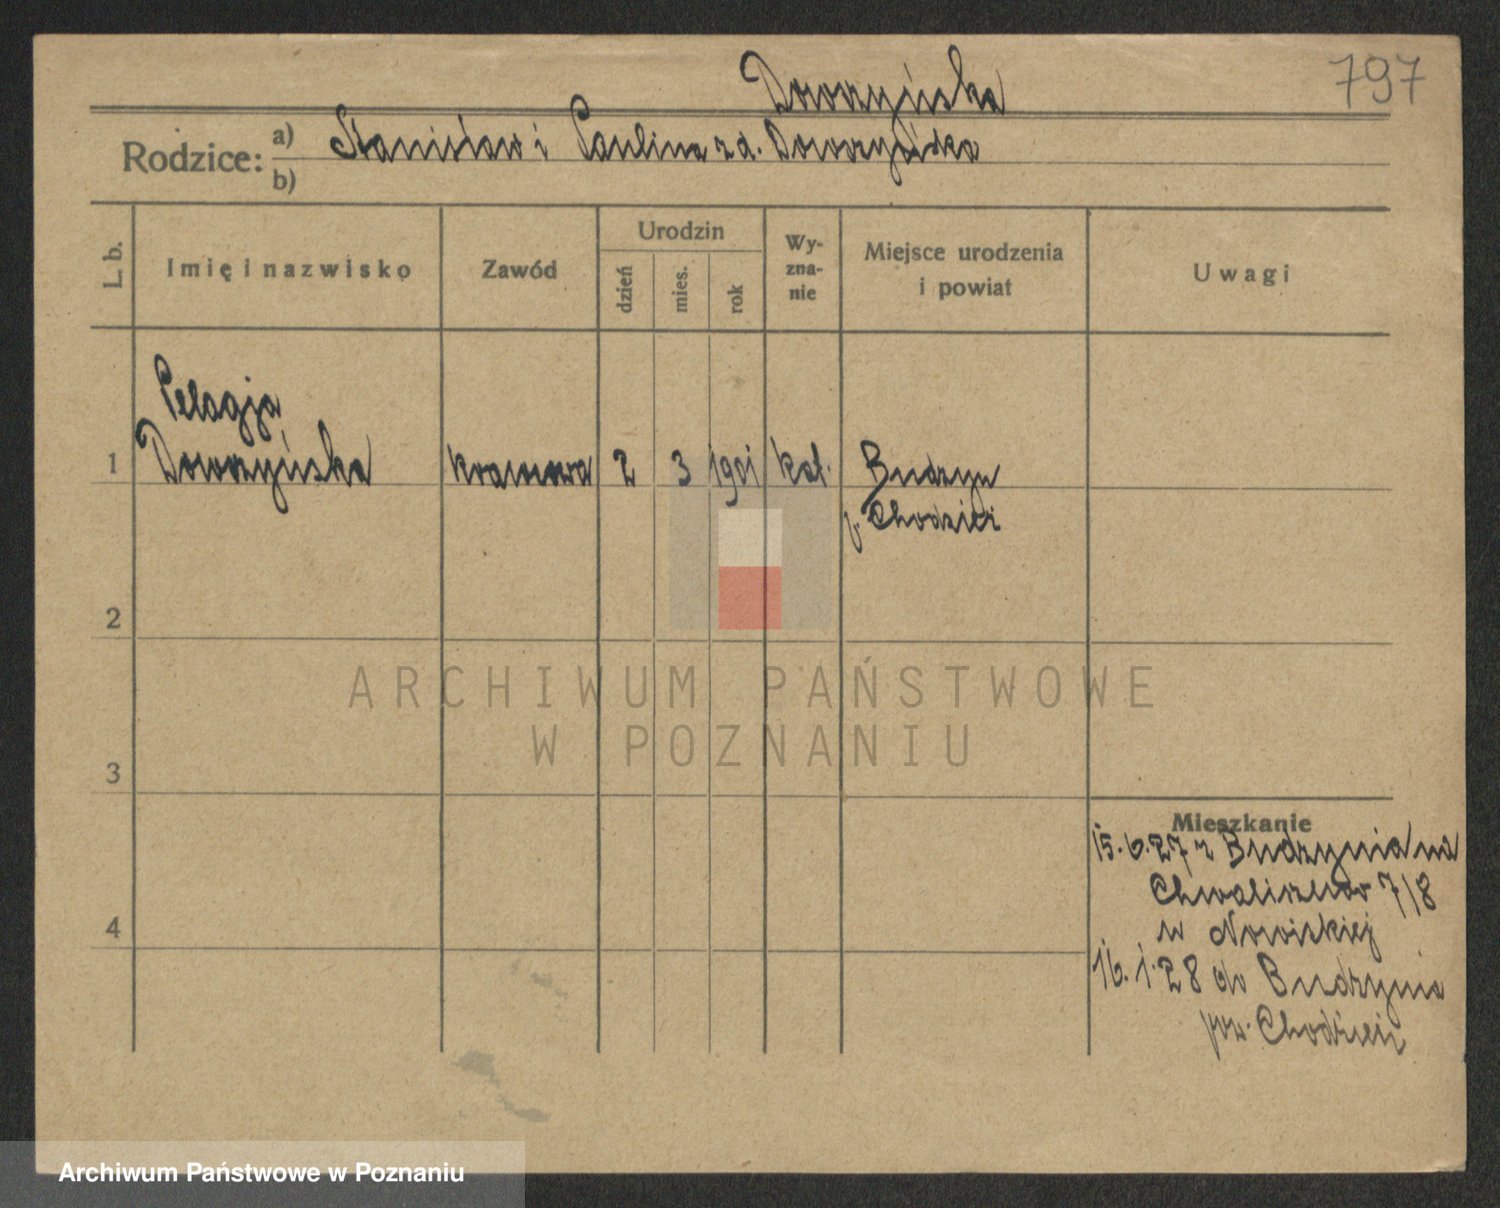 797
Doworzyńska
Rodzice: a) Stanisław i Paulina z d. Doworzyńska
b)
L. b.
Imię i nazwisko
Zawód
Urodzin
dzień
mies.
rok
Wy-
zna-
nie
Miejsce urodzenia
i powiat
Uwagi
Pelagja
1 Doworzyńska krawcowa 2 3 1901 kat. Budzyn
p. Chodzież
2
3
4
Mieszkanie
15.6.27 z Budzynia na
Chwaliszewo 7/8
16.1.28 do Budzynia
pow. Chodzież
ARCHIWUM PAŃSTWOWE
W POZNANIU
Archiwum Państwowe w Poznaniu